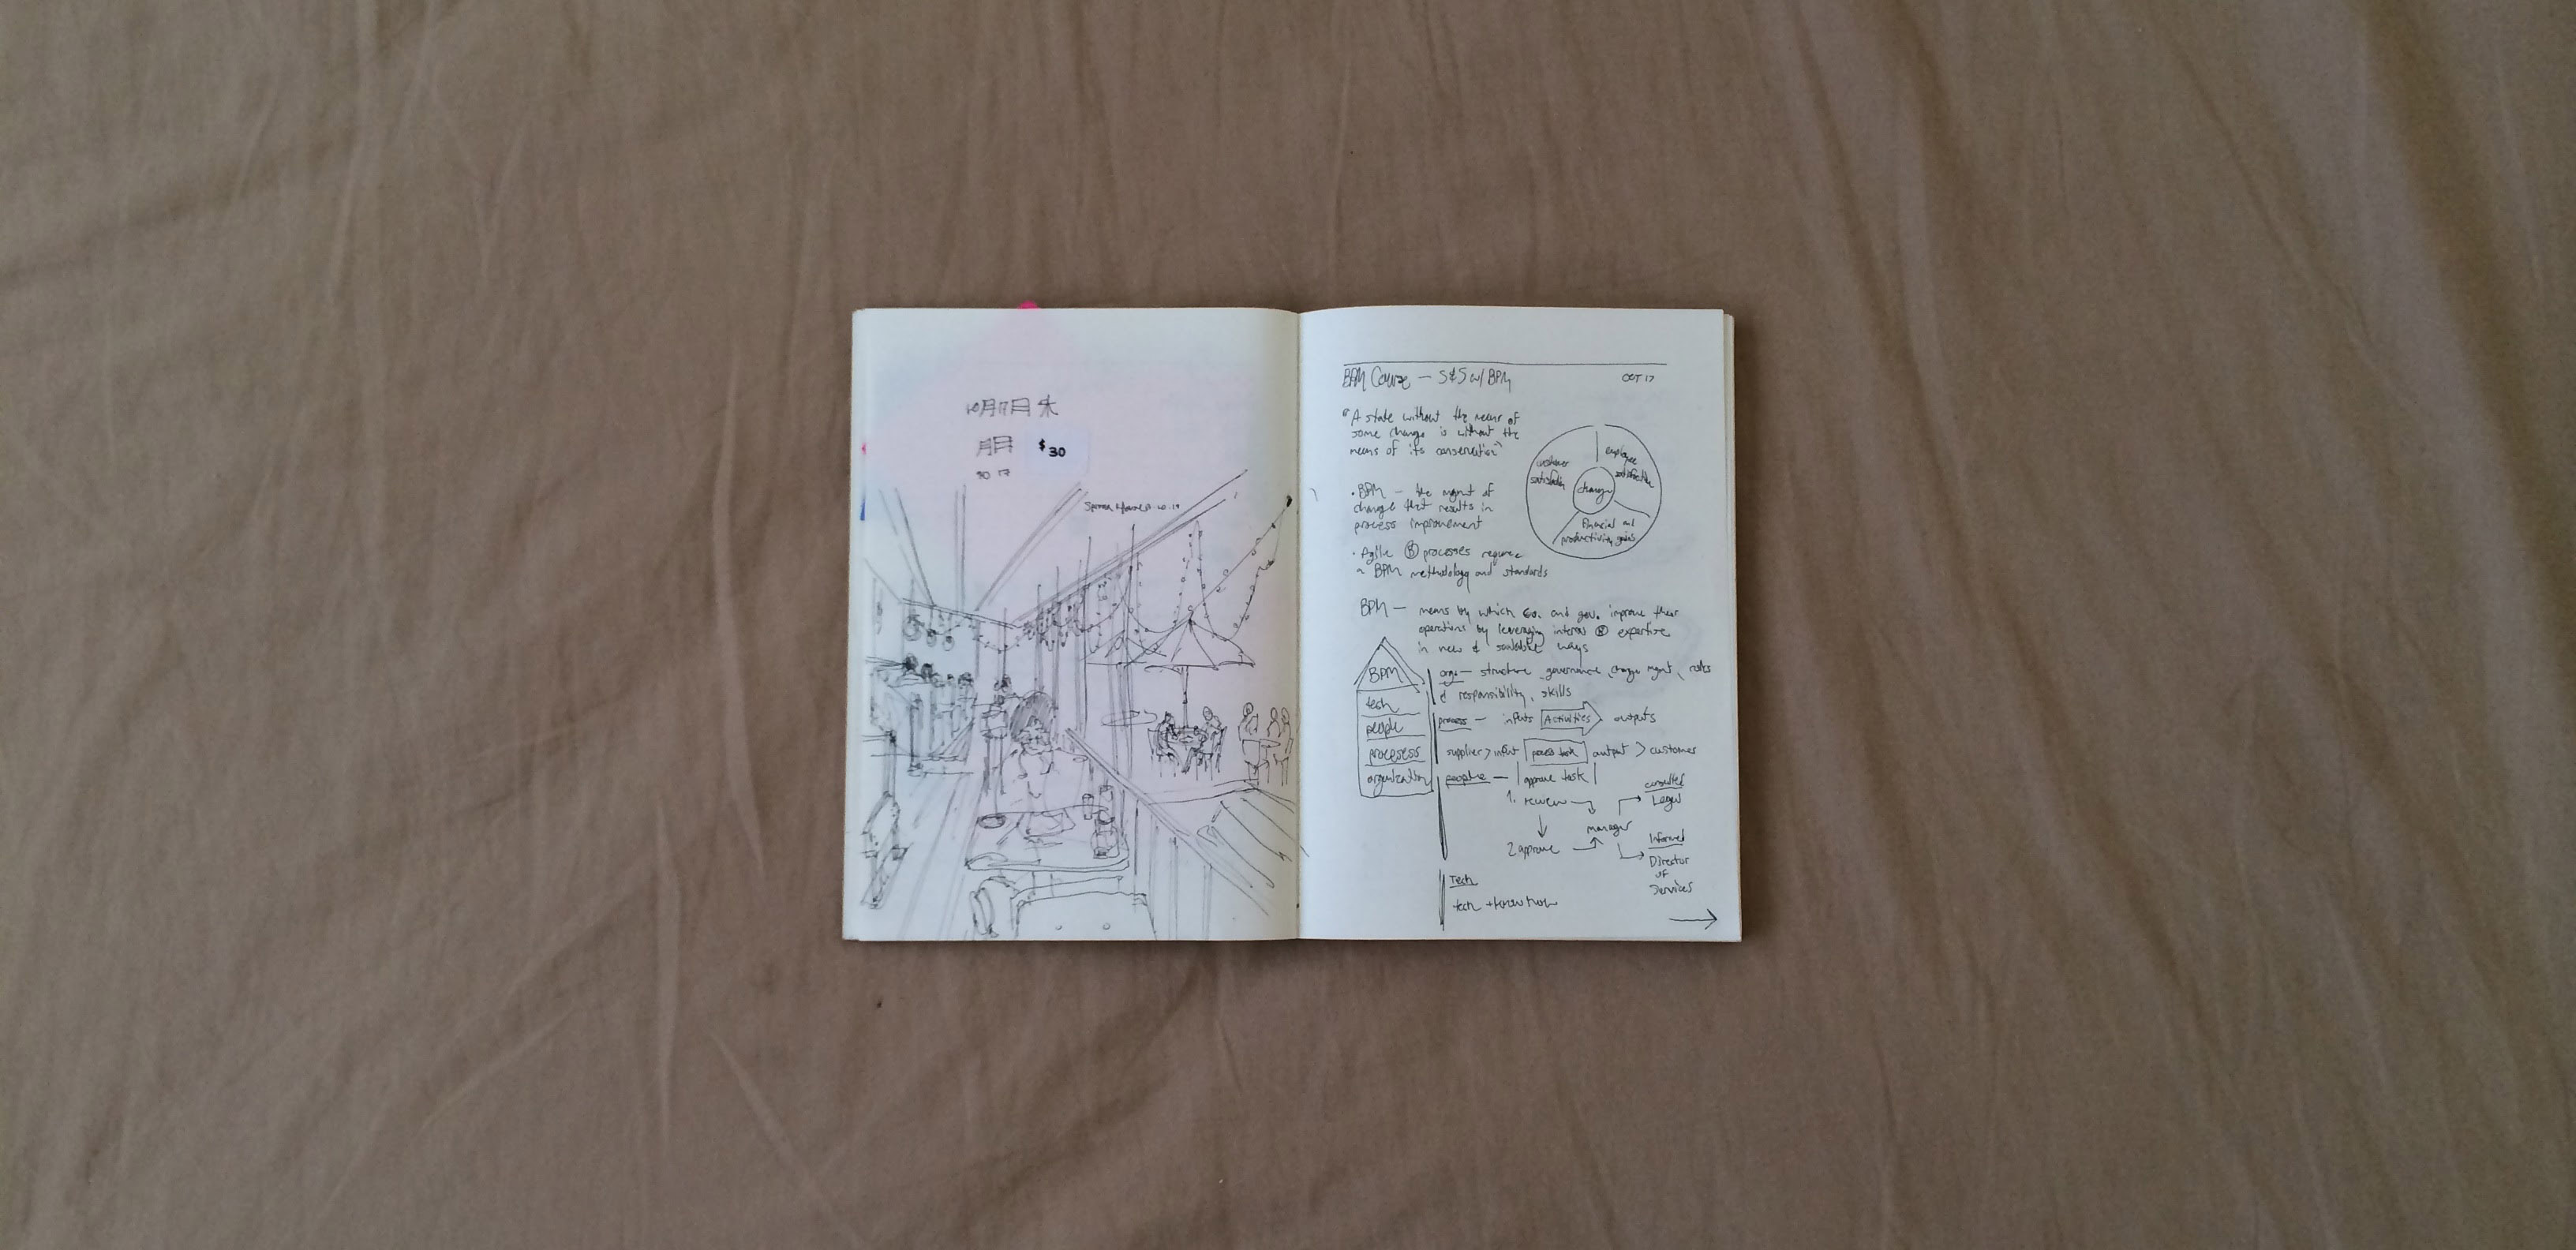 10月17日 木
月日
$30
10 17
10.19
BPM Course — S&S w/ BPM
OCT 17
"A state without the means of
some change is without the
means of its conservation"
customer
satisfaction
employee
satisfaction
change
Financial and
productivity goals
• BPM — the mgmt of
change that results in
process improvement
• Agile Ⓑ processes require
a BPM methodology and standards
BPM — means by which co. and gov. improve their
operations by leveraging internal Ⓑ expertise
in new & scalable ways
BPM
tech
people
processes
organization
orga — structure, governance, change mgmt, roles
& responsibility, skills
process — inputs Activities outputs
supplier > input process task output > customer
people — approve task
1. review
manager
2 approve
consulted
Legal
Informed
Director
of
Services
Tech
tech + know how